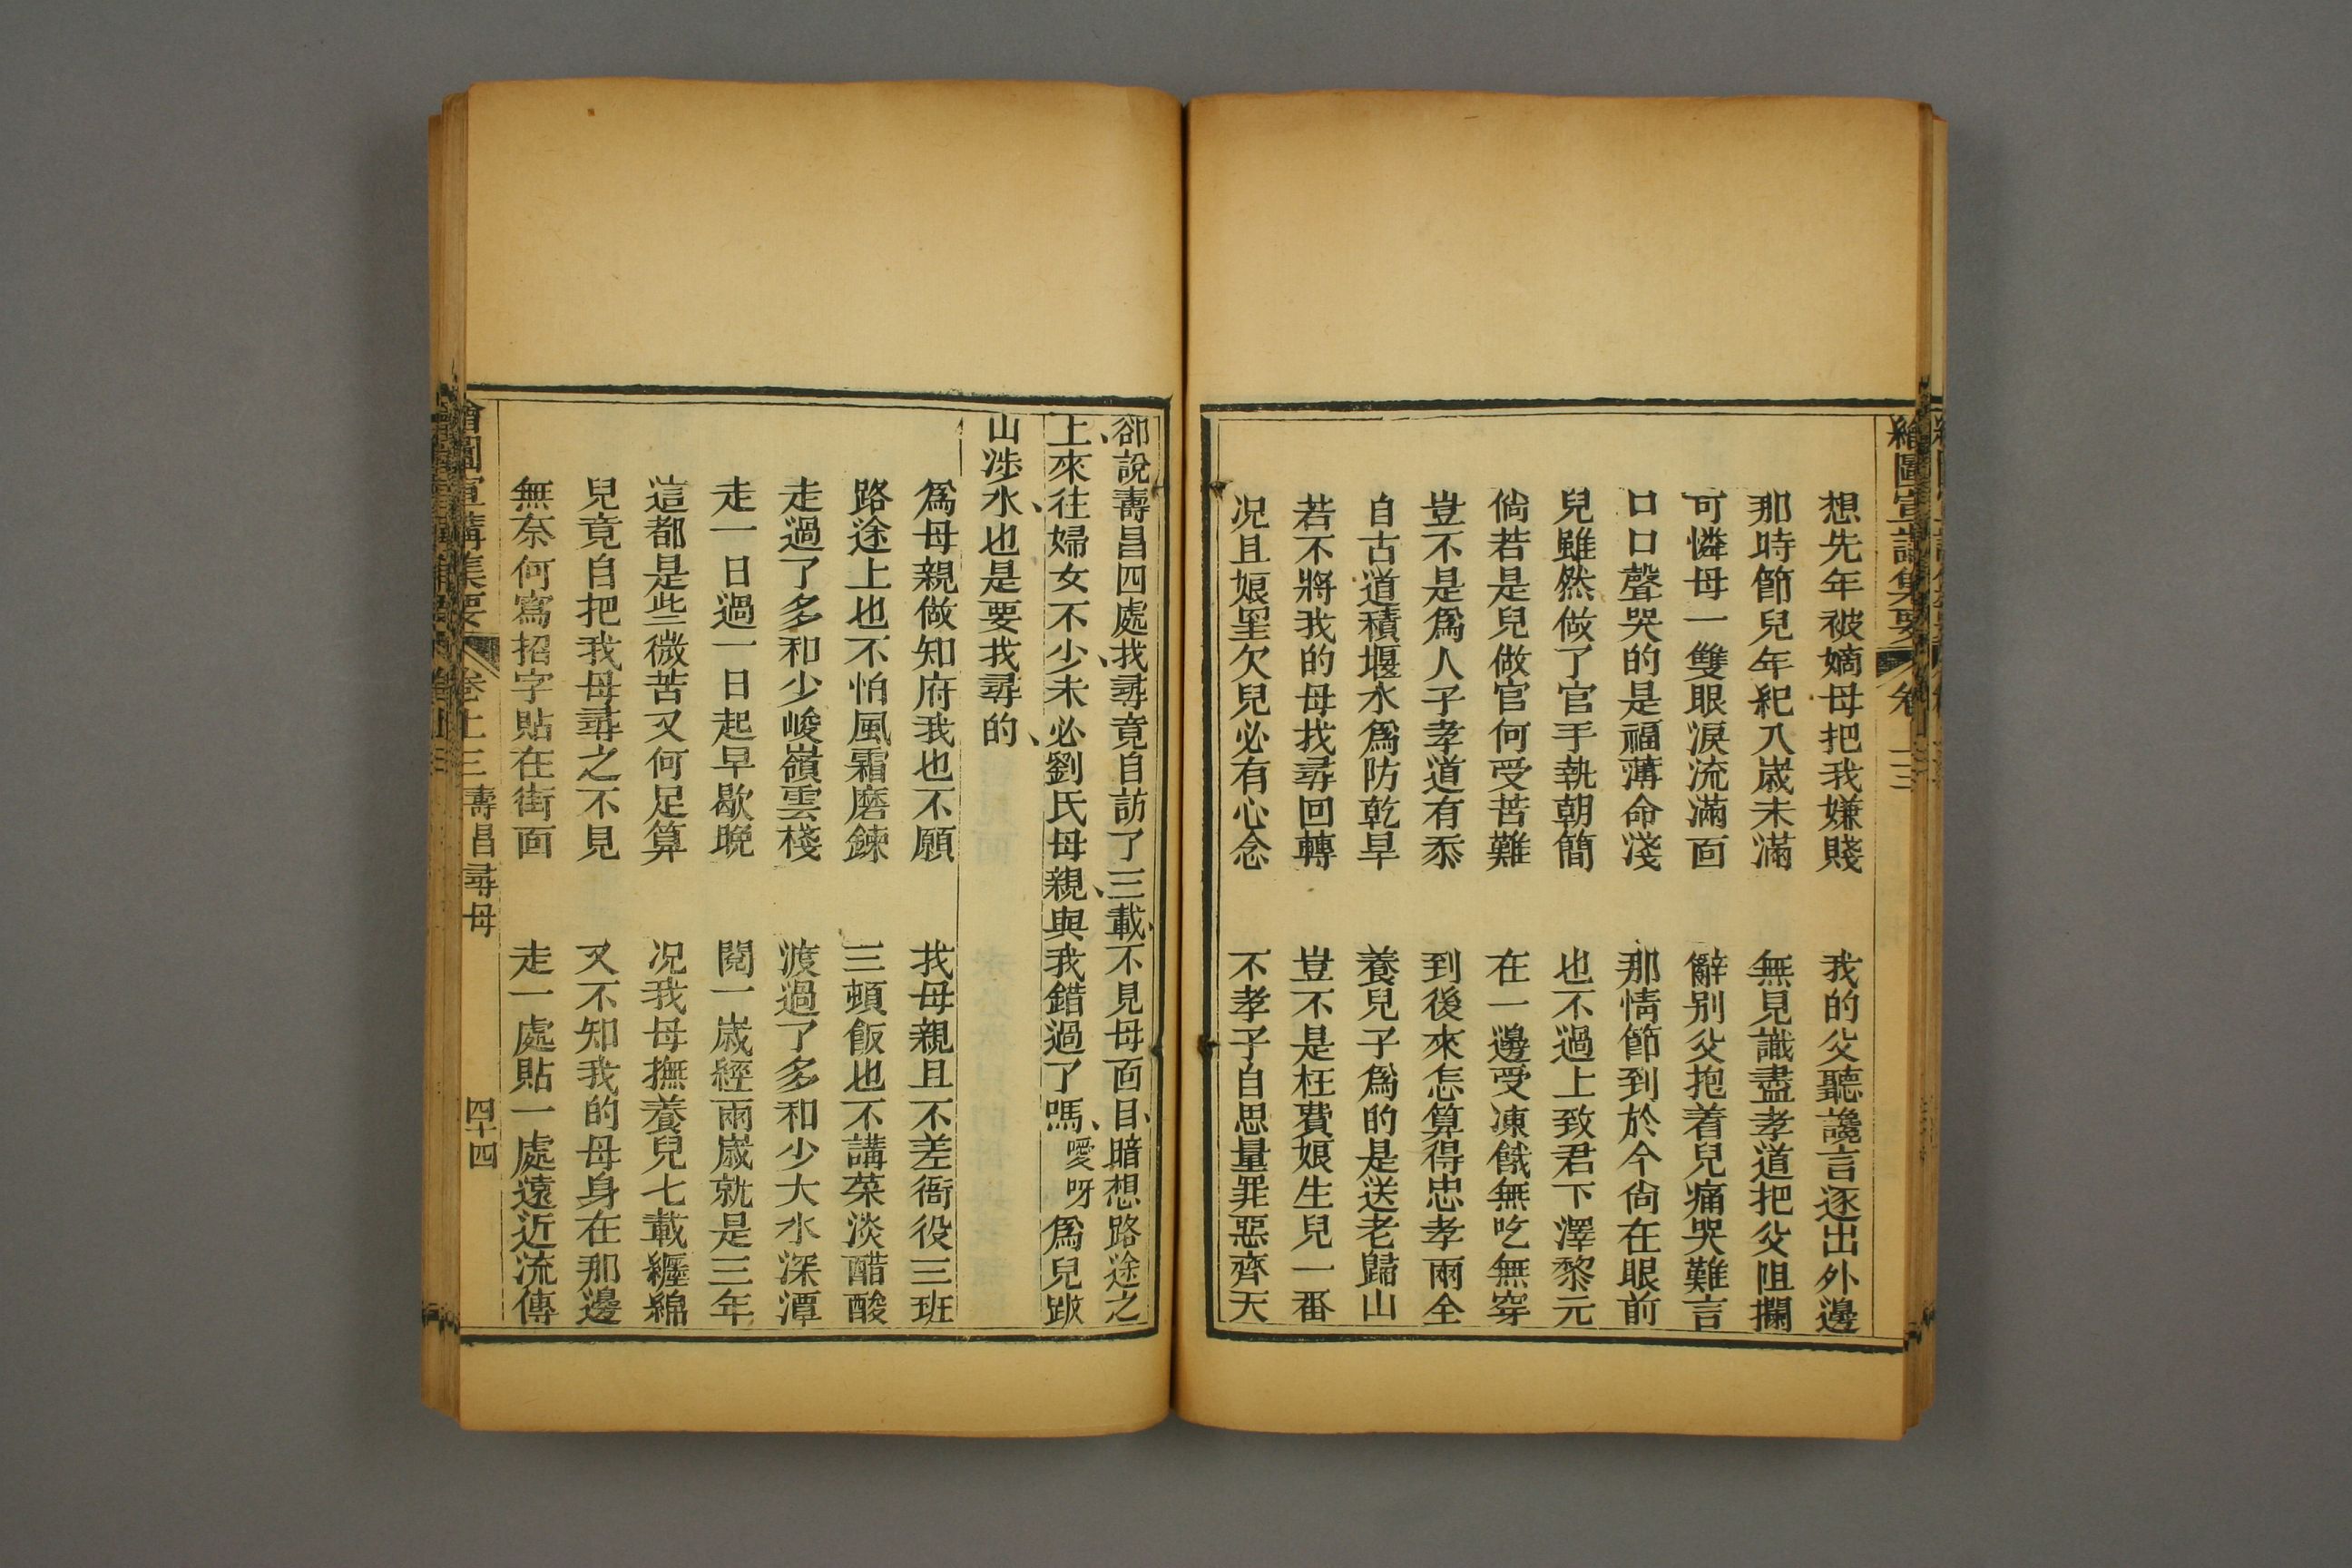 繪圖宣講集要 卷上三
想先年被嫡母把我嫌賤 我的父聽讒言逐出外邊
那時節兒年紀八歲未滿 無見識盡孝道把父阻攔
可憐母一雙眼淚流滿面 辭别父抱着兒痛哭難言
口口聲哭的是福薄命淺 那情節到於今尙在眼前
兒雖然做了官手執朝簡 也不過上致君下澤黎元
倘若是兒做官何受苦難 在一邊受凍餓無吃無穿
豈不是爲人子孝道有忝 到後來怎算得忠孝兩全
自古道積堰水爲防乾旱 養兒子爲的是送老歸山
若不將我的母找尋回轉 豈不是枉費娘生兒一番
况且娘望欠兒必有心念 不孝子自思量罪惡齊天
卻說壽昌四處找尋竟自訪了三載、不見母面目、暗想路途之
上、來往婦女不少、未必劉氏母親與我錯過了嗎、噯呀爲兒跋
山涉水、也是要找尋的、
爲母親做知府我也不願 找母親且不差衙役三班
路途上也不怕風霜磨鍊 三頓飯也不講菜淡醋酸
走過了多和少峻嶺雲棧 渡過了多和少大水深潭
走一日過一日起早歇晚 閱一歲經兩歲就是三年
這都是些微苦又何足算 况我母撫養兒七載纏綿
兒竟自把我母尋之不見 又不知我的母身在那邊
無奈何寫招字貼在街面 走一處貼一處遠近流傳
繪圖宣講集要 卷上三 壽昌尋母 四十四